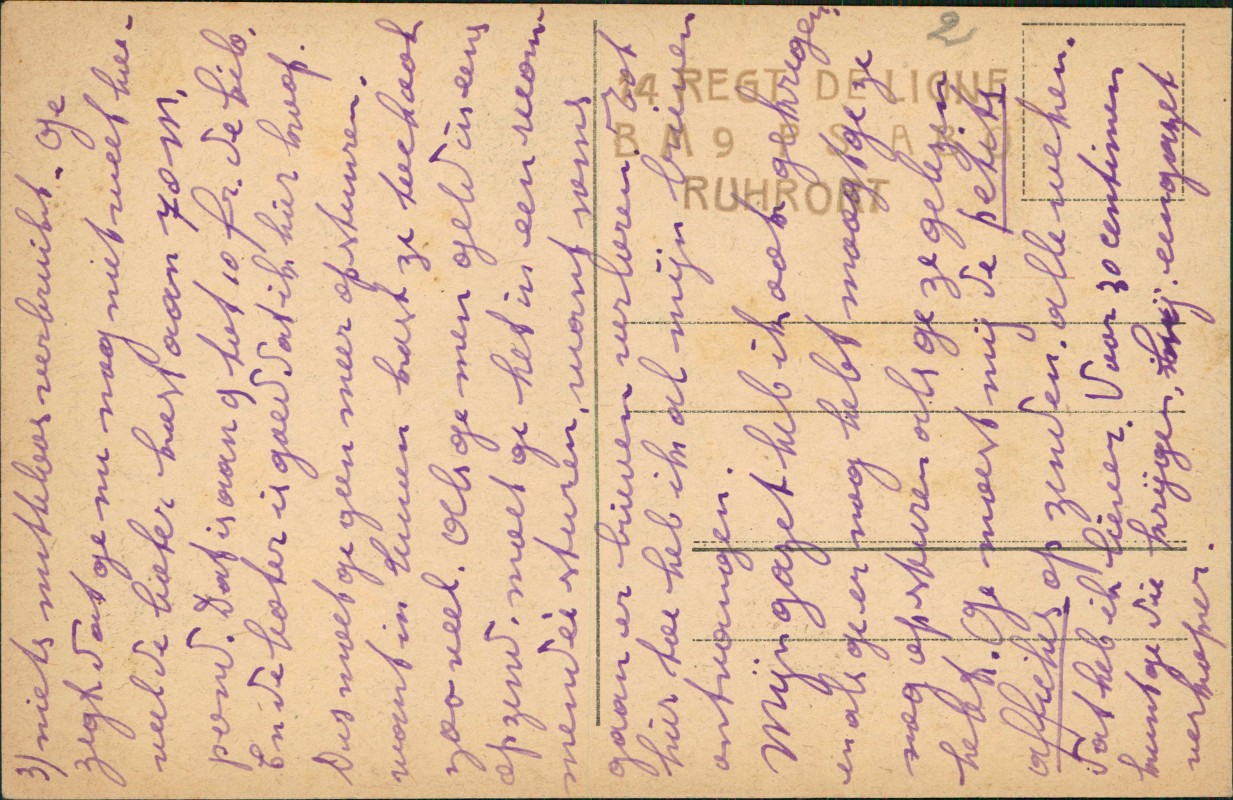 3) niets nutteloos verbruikt. Ge
zegt dat ge nu nog niet weet hoe-
veel de bieker kost aan 70 m,
pond. Dat is aan 9 tot 10 fr. de kilo.
En de boter is goed dat ik hier koop.
Dus moet ge geen meer opsturen.
want in kost ze toch ook
zoo veel. Als ge men geld eens
opzend, moet ge het in een reom
mendée sturen, want soms
gaan er brieven verloren. Tot
hier toe heb ik al mijn brieven
ontvangen.
Mijn gazet heb ik ook gekregen
en als ge er nog hebt moogt ge ze
nog opsturen als ge ze gelezen
hebt. Ge moest mij de petits
affiches op zenden. alle weken.
Dat heb ik liever. Voor 30 centimen
kunt ge die krijgen, eengazet
verkoper.
2
14 REGT DE LIGNE
B M 9 P S A B
RUHRORT